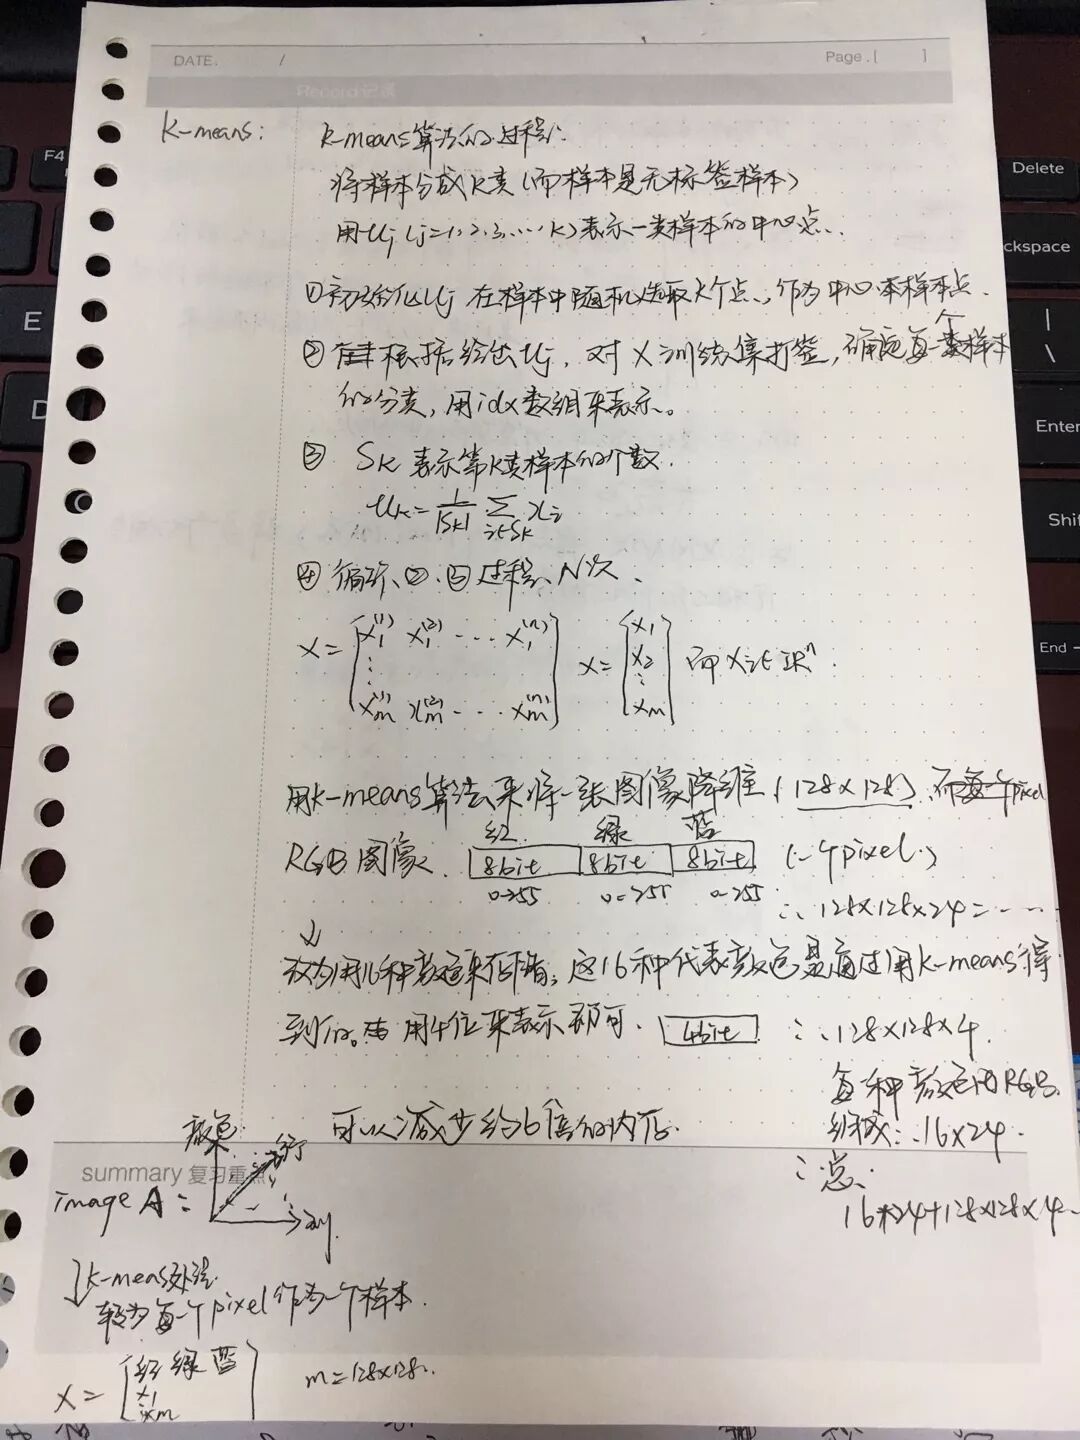 DATE. /
Page.[ ]
Record记录
K-means:
K-means算法的过程:
将样本分成K类(而样本是无标签样本)
用uj (j=1,2,3,...,K)表示一类样本的中心点.
①初始化uj 在样本中随机选取K个点,作为中心样本点.
②根据给出uj,对X训练集打签,确定每一个样本
的分类,用idx数组来表示。
③ SK 表示第K类样本的个数.
uk=1/|Sk| ∑i∈Sk xi
④循环、②、③过程、N次.
X= [x1(1) x1(2) ... x1(n) ⋮ xm(1) xm(2) ... xm(n)] X= [x1 x2 ⋮ xm] 而Xi∈Rn.
用K-means算法来将一张图像降维(128×128)
红 绿 蓝
RGB图像 8bit 8bit 8bit (一个pixel)
0~255 0~255 0~255
∴128×128×24=......
↓
改为用16种颜色来存储,这16种代表颜色是通过用K-means得
到的。用4位来表示即可. 4bit ∴128×128×4.
每种颜色由RGB
组成∴16×24.
可以减少约6倍的内存.
∴总.
16×24+128×128×4.
summary 复习重点
颜色 行
image A=
↓K-meas处理
转为每个pixel作为一个样本.
X= [红 绿 蓝 x1 ⋮ xm] m=128×128..
F4
Delete
ckspace
E
|
\
D
Enter
Shif
End